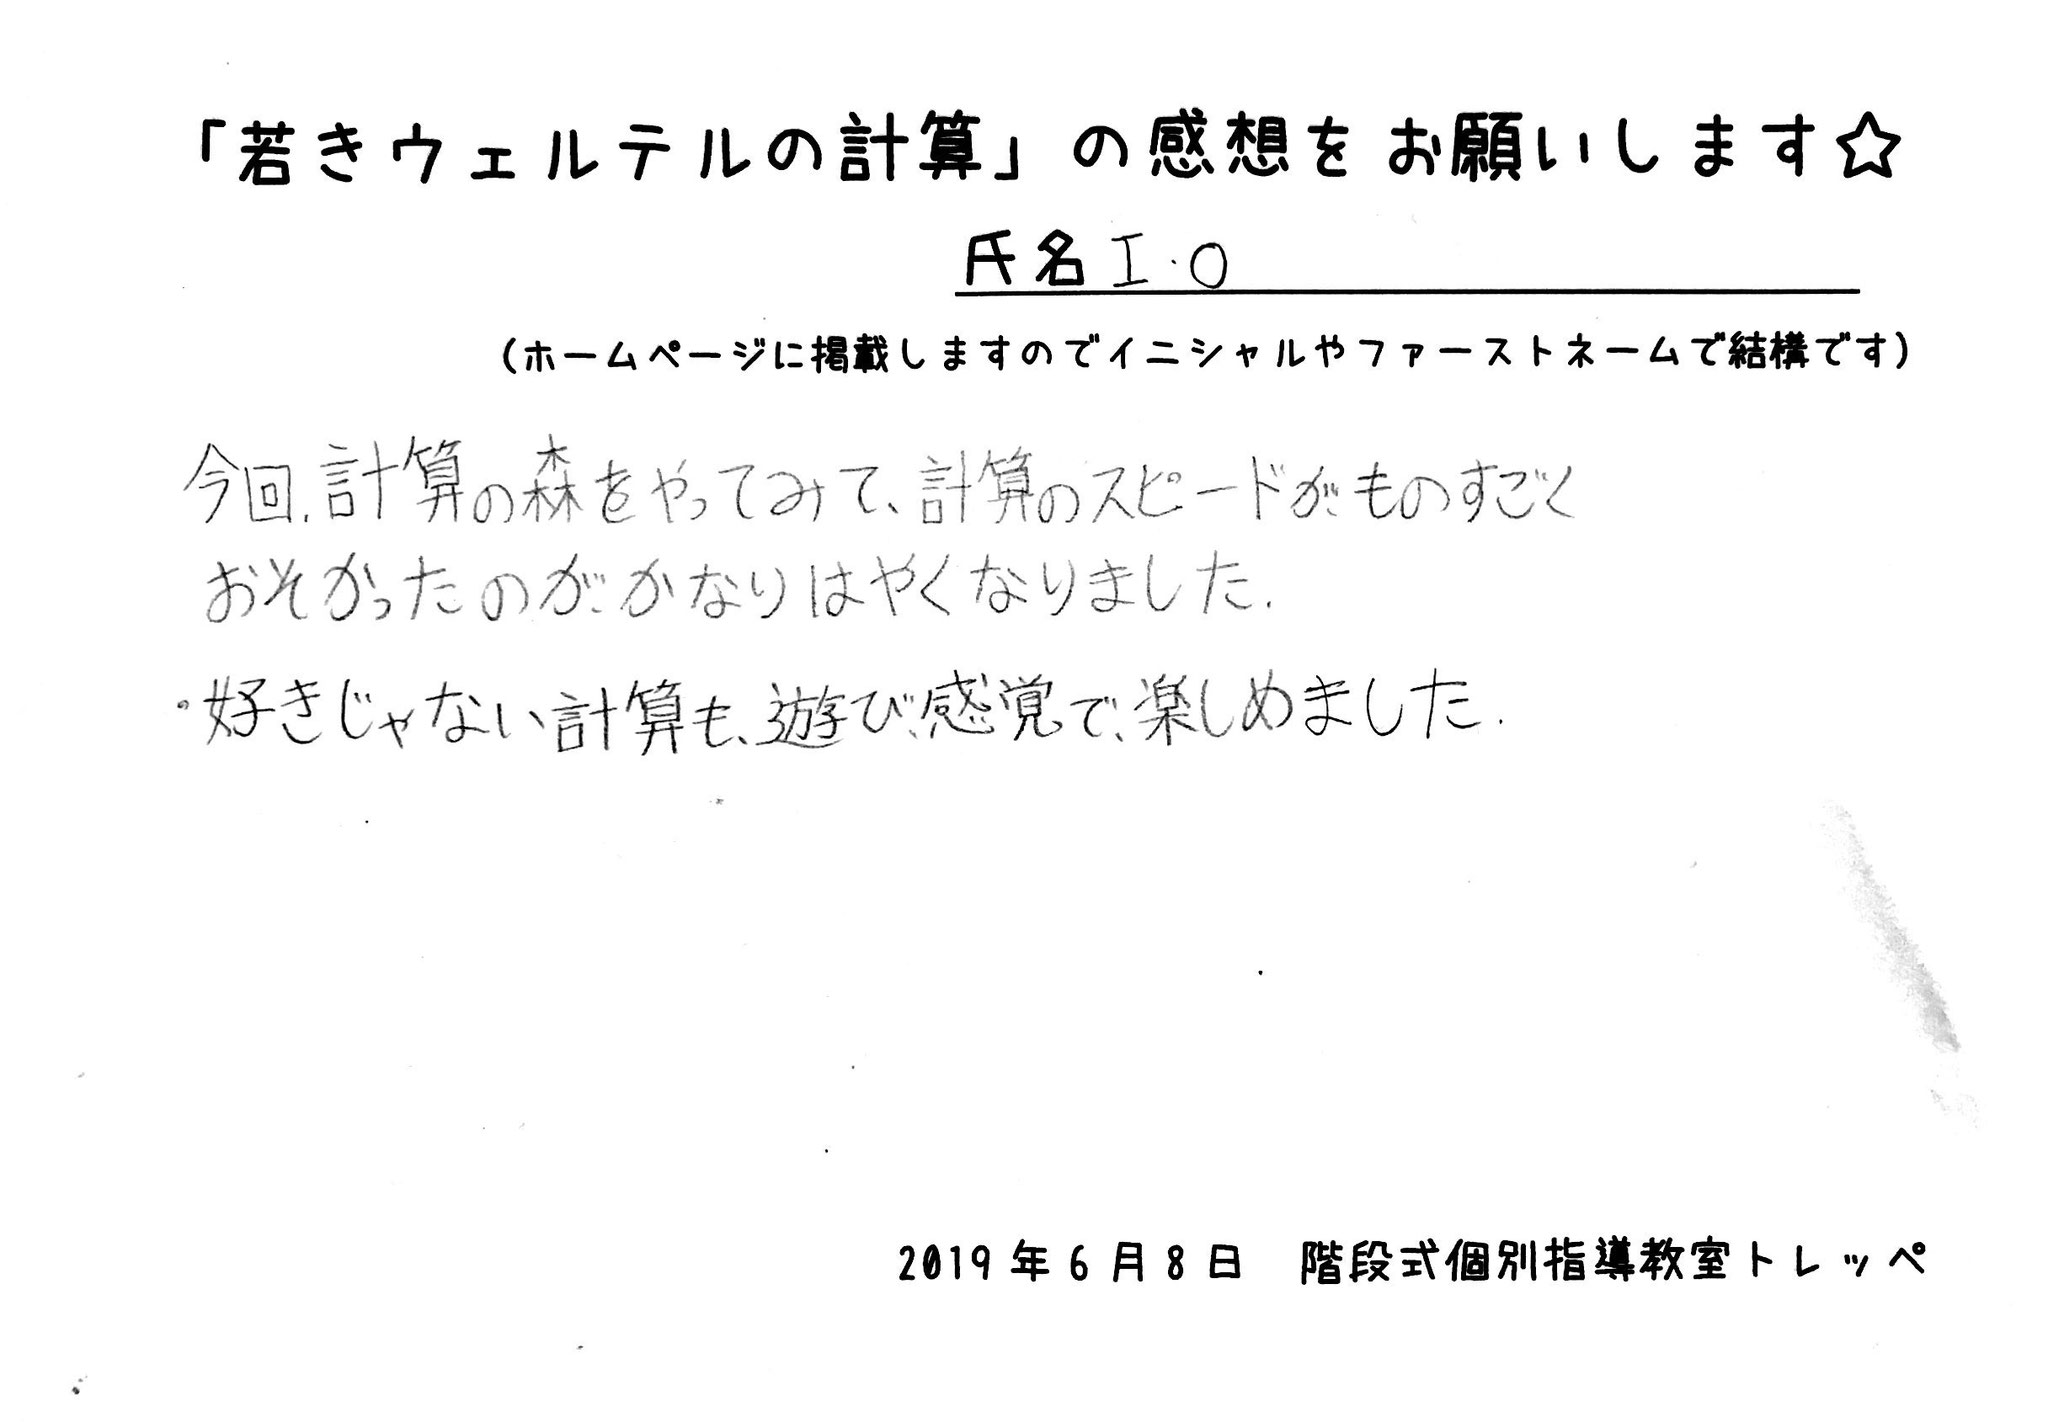 「若きウェルテルの計算」の感想をお願いします☆
氏名 I.O
(ホームページに掲載しますのでイニシャルやファーストネームで結構です)
今回、計算の森をやってみて、計算のスピードがものすごく
おそかったのがかなりはやくなりました.
・好きじゃない計算も、遊び感覚で、楽しめました.
2019年6月8日 階段式個別指導教室トレッペ